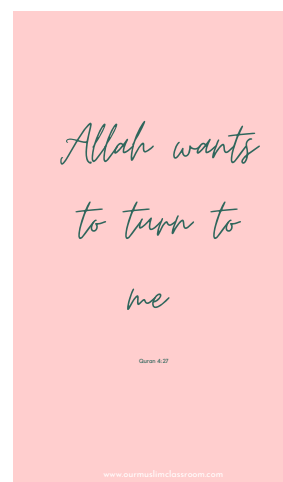 Allah wants
to turn to
me
Quran 4:27
www.ourmuslimclassroom.com